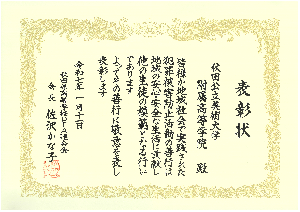 表彰状
秋田公立美術大学
附属高等学院 殿
皆様が地域社会で実践された
犯罪被害防止活動の善行は
地域の安心安全な生活に貢献し
他の生徒の模範となる行い
であります
よってその善行に敬意を表し
表彰します
令和七年一月十日
会長 佐沢かな子